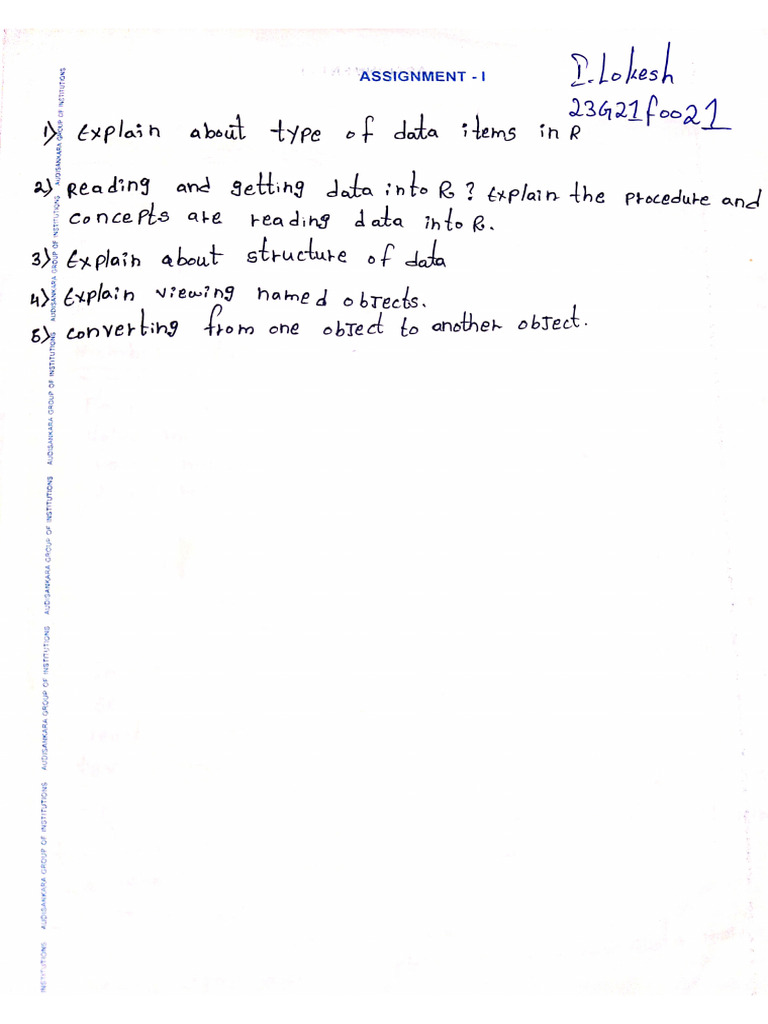 ASSIGNMENT - I
I. Lokesh
23G21f0021
1) Explain about type of data items in R
2) Reading and getting data into R? Explain the procedure and
concepts are reading data into R.
3) Explain about structure of data
4) Explain viewing named objects.
5) converting from one object to another object.
AUDISANKARA GROUP OF INSTITUTIONS AUDISANKARA GROUP OF INSTITUTIONS AUDISANKARA GROUP OF INSTITUTIONS AUDISANKARA GROUP OF INSTITUTIONS AUDISANKARA GROUP OF INSTITUTIONS AUDISANKARA GROUP OF INSTITUTIONS INSTITUTIONS